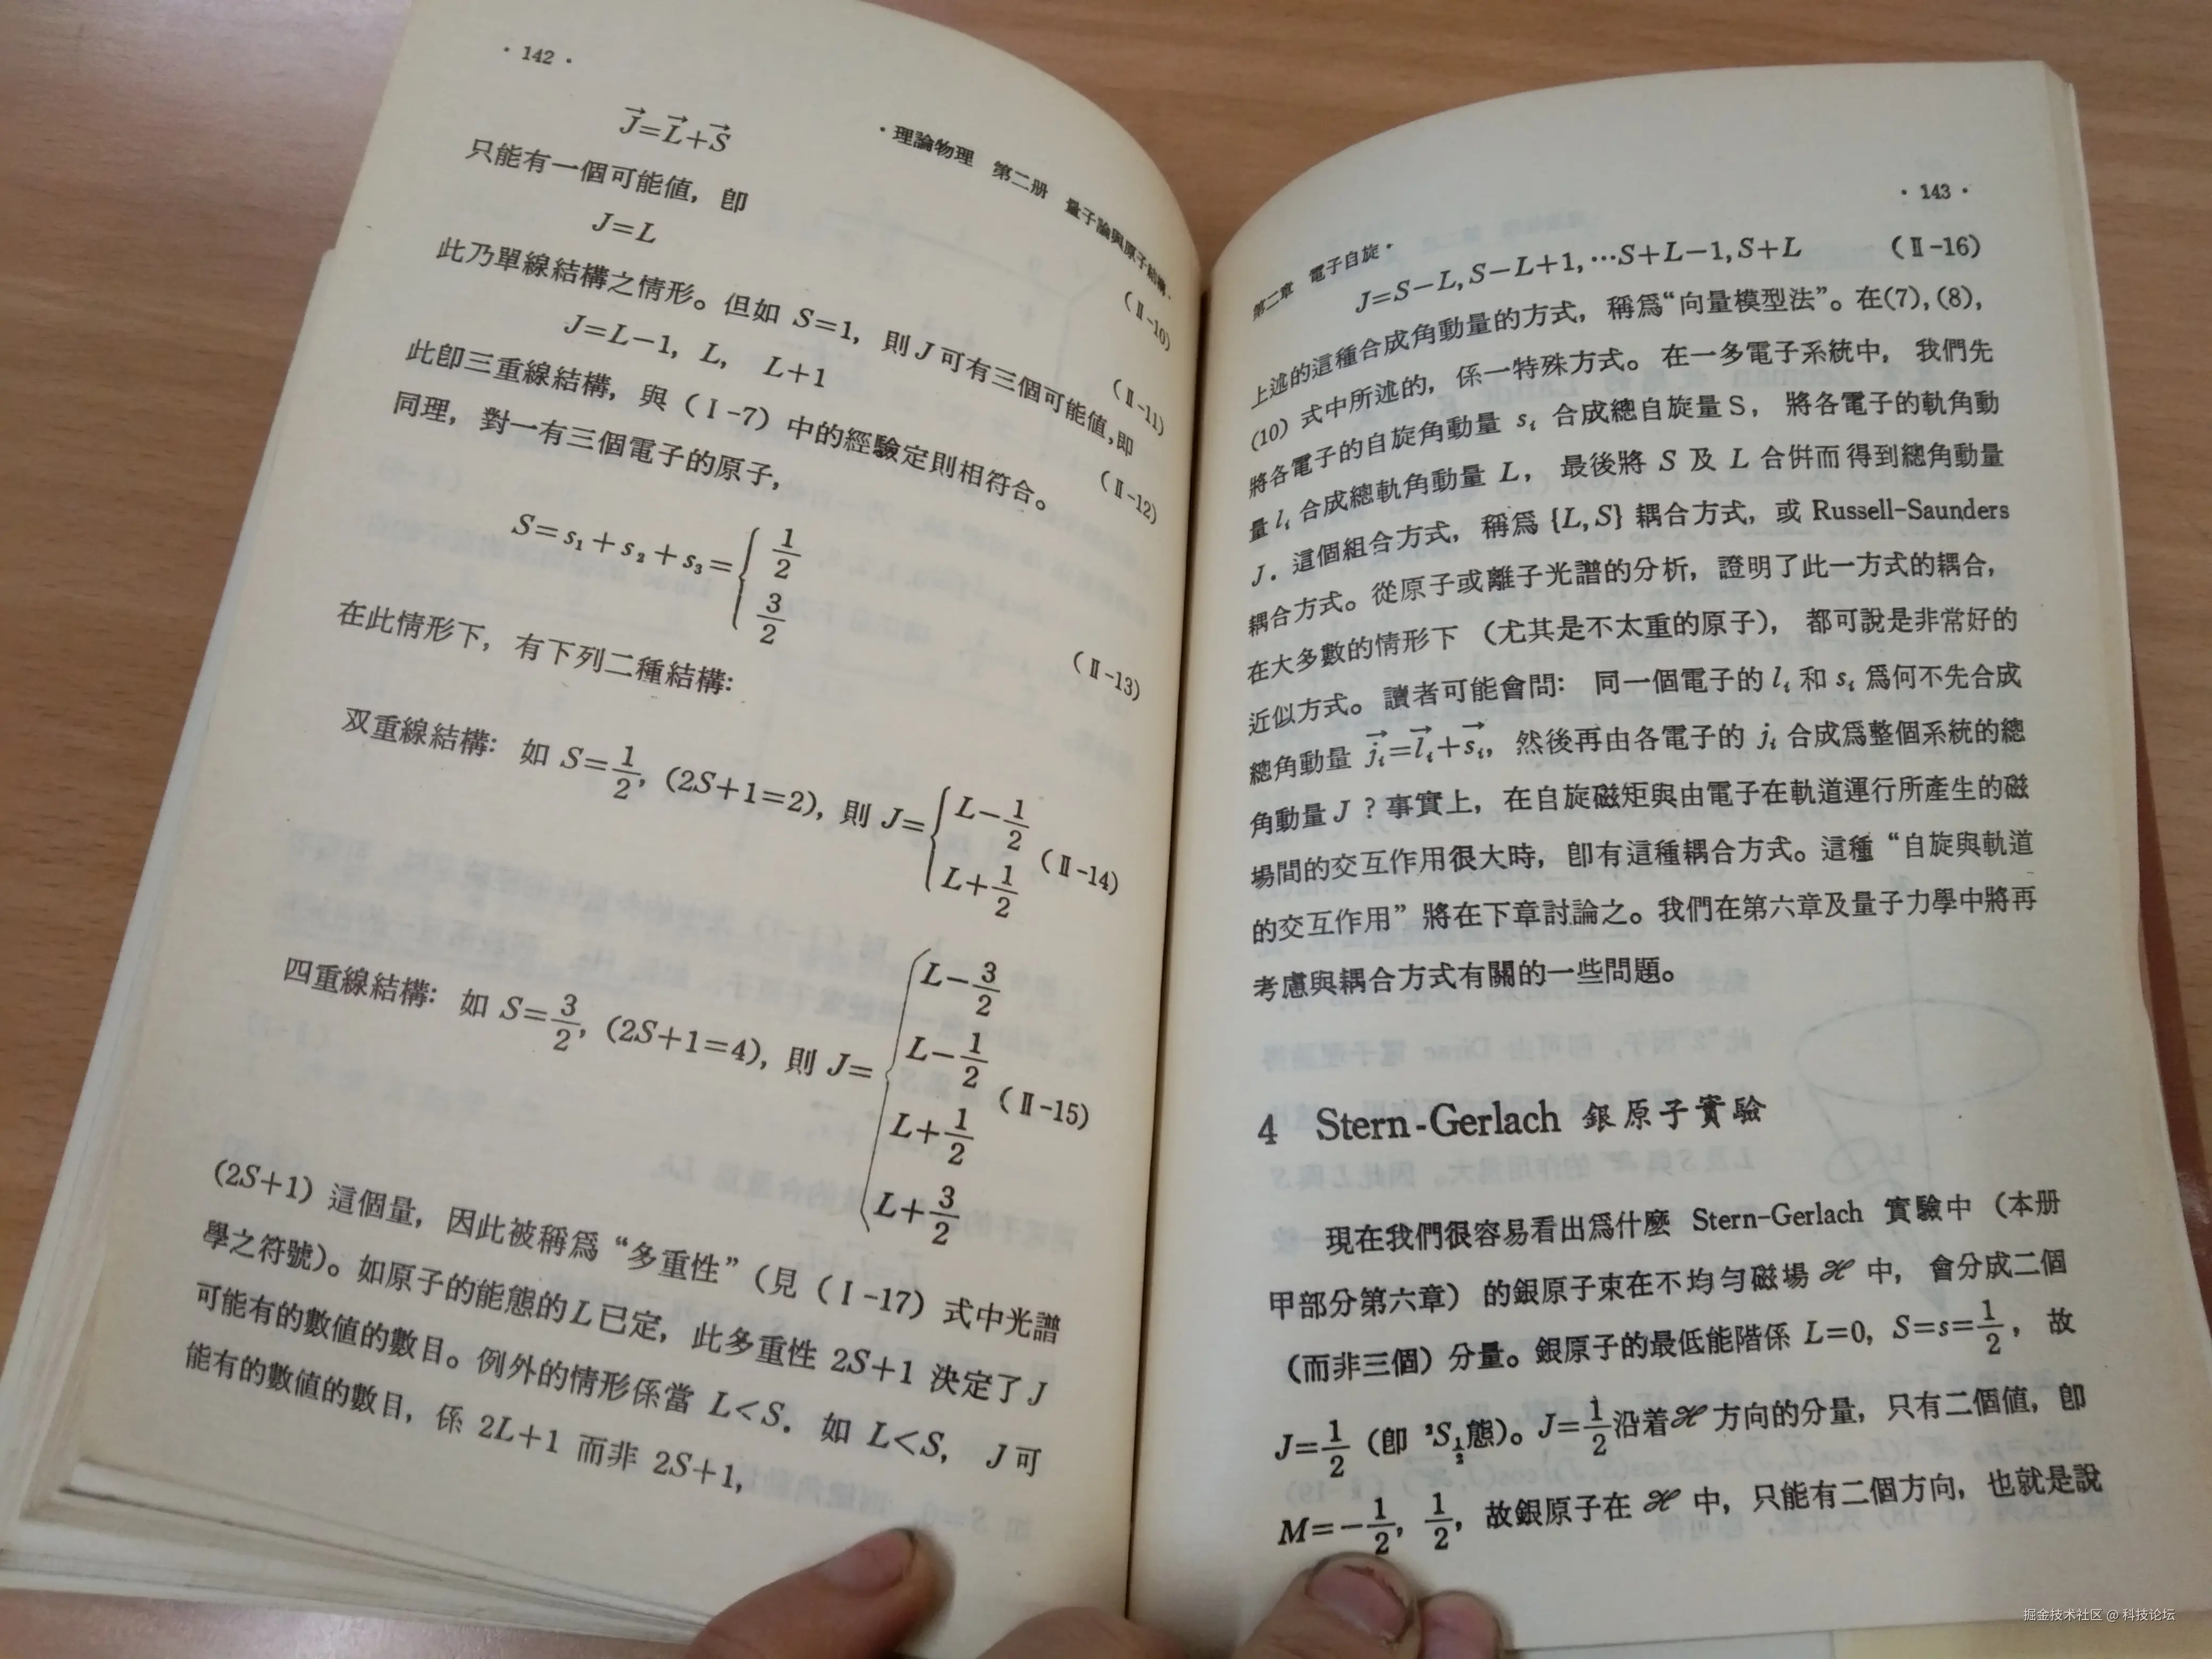 · 142 ·
· 理論物理 第二册 量子論與原子結構 ·
J⃗=L⃗+S⃗ (Ⅱ-10)
只能有一個可能値，卽
J=L (Ⅱ-11)
此乃單線結構之情形。但如 S=1，則 J 可有三個可能値，即
J=L−1, L, L+1 (Ⅱ-12)
此卽三重線結構，與（Ⅰ-7）中的經驗定則相符合。
同理，對一有三個電子的原子，
S=s₁+s₂+s₃={ 1/2 3/2 (Ⅱ-13)
在此情形下，有下列二種結構：
双重線結構： 如 S=1/2, (2S+1=2), 則 J={ L−1/2 L+1/2 (Ⅱ-14)
四重線結構： 如 S=3/2, (2S+1=4), 則 J={ L−3/2 L−1/2 L+1/2 L+3/2 (Ⅱ-15)
(2S+1) 這個量，因此被稱爲“多重性”（見（Ⅰ-17）式中光譜
學之符號）。如原子的能態的 L 已定，此多重性 2S+1 決定了 J
可能有的數値的數目。例外的情形係當 L<S．如 L<S， J 可
能有的數値的數目，係 2L+1 而非 2S+1，
· 143 ·
第二章 電子自旋 ·
J=S−L, S−L+1, …S+L−1, S+L (Ⅱ-16)
上述的這種合成角動量的方式，稱爲“向量模型法”。在(7), (8),
(10) 式中所述的，係一特殊方式。在一多電子系統中，我們先
將各電子的自旋角動量 sᵢ 合成總自旋量 S，將各電子的軌角動
量 lᵢ 合成總軌角動量 L，最後將 S 及 L 合併而得到總角動量
J．這個組合方式，稱爲 {L, S} 耦合方式，或 Russell-Saunders
耦合方式。從原子或離子光譜的分析，證明了此一方式的耦合，
在大多數的情形下（尤其是不太重的原子），都可說是非常好的
近似方式。讀者可能會問： 同一個電子的 lᵢ 和 sᵢ 爲何不先合成
總角動量 j⃗ᵢ=l⃗ᵢ+s⃗ᵢ，然後再由各電子的 jᵢ 合成爲整個系統的總
角動量 J ？事實上，在自旋磁矩與由電子在軌道運行所產生的磁
場間的交互作用很大時，卽有這種耦合方式。這種“自旋與軌道
的交互作用”將在下章討論之。我們在第六章及量子力學中將再
考慮與耦合方式有關的一些問題。
4 Stern-Gerlach 銀原子實驗
現在我們很容易看出爲什麼 Stern-Gerlach 實驗中（本册
甲部分第六章）的銀原子束在不均勻磁場 ℋ 中，會分成二個
（而非三個）分量。銀原子的最低能階係 L=0, S=s=1/2，故
J=1/2（卽 ²S₁/₂態）。J=1/2沿着ℋ方向的分量，只有二個値，卽
M=−1/2, 1/2，故銀原子在 ℋ 中，只能有二個方向，也就是說
掘金技术社区 @ 科技论坛